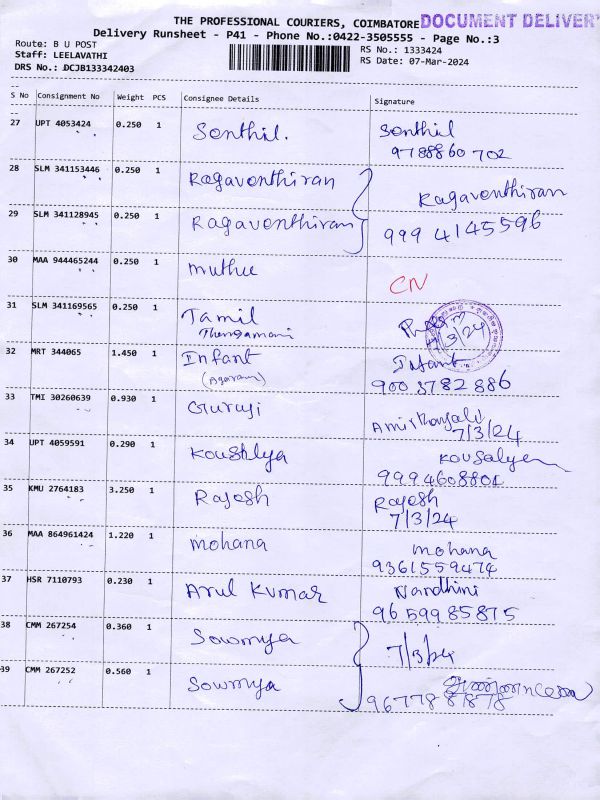 THE PROFESSIONAL COURIERS, COIMBATORE DOCUMENT DELIVER
Delivery Runsheet - P41 - Phone No.:0422-3505555 - Page No.:3
Route: B U POST
Staff: LEELAVATHI
DRS No.: DCJB133342403
RS No.: 1333424
RS Date: 07-Mar-2024
S No Consignment No Weight PCS Consignee Details Signature
27 UPT 4053424 0.250 1 Senthil. Senthil
9788860702
28 SLM 341153446 0.250 1 Ragaventhiran Ragaventhiran
29 SLM 341128945 0.250 1 Ragaventhiran 999 4145596
30 MAA 944465244 0.250 1 muthu CN
31 SLM 341169565 0.250 1 Tamil
Thengamani
7/3/24
32 MRT 344065 1.450 1 Infant Infant
(Agaram) 900 3782 886
33 TMI 30260639 0.930 1 Guruji
7/3/24
34 UPT 4059591 0.290 1 Koushlya Kousalya
9994608801
35 KMU 2764183 3.250 1 Rajesh Rajesh
7/3/24
36 MAA 864961424 1.220 1 mohana mohana
9361559474
37 HSR 7110793 0.230 1 Arul Kumar Nandhini
96 599 85875
38 CMM 267254 0.360 1 Sowmya 7/3/24
39 CMM 267252 0.560 1 Sowmya